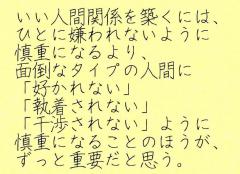 いい人間関係を築くには、
ひとに嫌われないように
慎重になるより、
面倒なタイプの人間に
「好かれない」
「執着されない」
「干渉されない」ように
慎重になることのほうが、
ずっと重要だと思う。